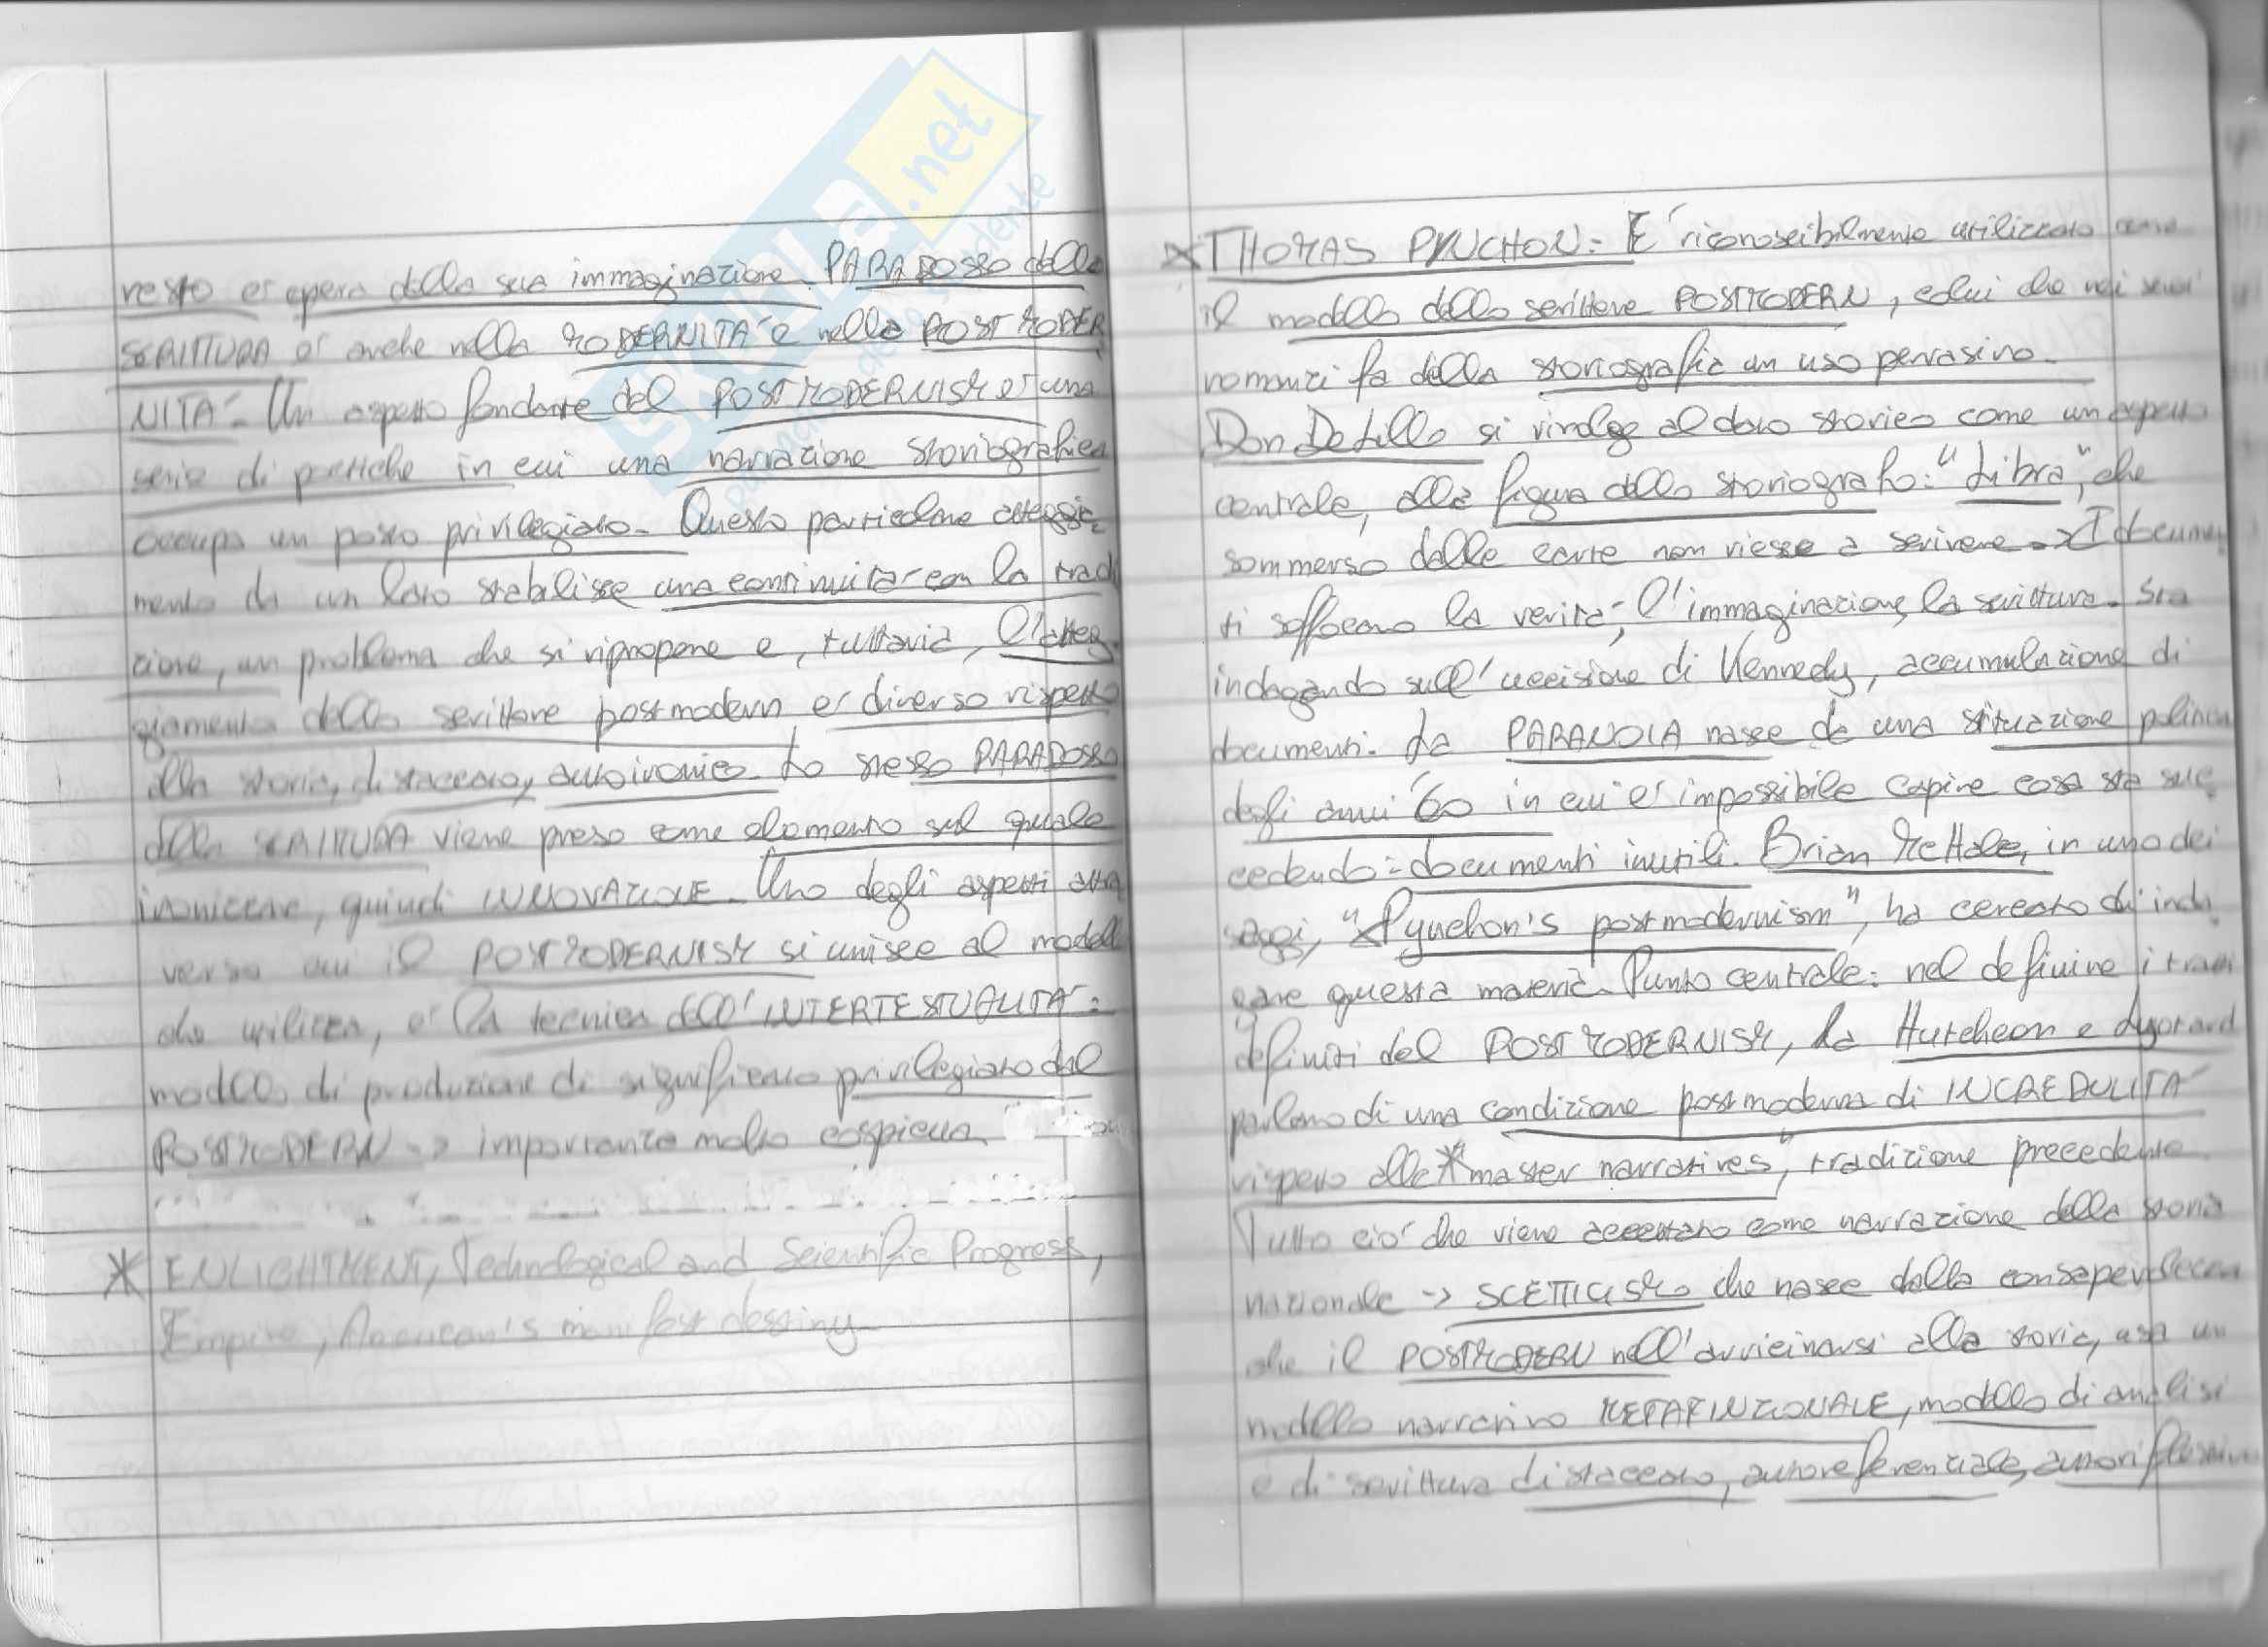 resto è opera della sua immaginazione. PARADOSSO della
SCRITTURA è anche nella MODERNITA' e nella POSTMODER
NITA'. Un aspetto fondante del POSTMODERNISM è una
serie di poetiche in cui una narrazione storiografica
occupa un posto privilegiato. Questo particolare atteggia
mento da un lato stabilisce una continuità con la tradi
zione, un problema che si ripropone e, tuttavia, l'atteg
giamento dello scrittore postmodern è diverso rispetto
alla storia, distaccato, autoironico. Lo stesso PARADOSSO
della SCRITTURA viene preso come elemento sul quale
ironizzare, quindi INNOVAZIONE. Uno degli aspetti attra
verso cui il POSTMODERNISM si unisce al modello
che utilizza, è la tecnica dell'INTERTESTUALITA':
modello di produzione di significato privilegiato dal
POSTMODERN -> importanza molto cospicua.
* ENLIGHTMENT, Technological and Scientific Progress,
Empire, American's manifest destiny
*THOMAS PYNCHON: E' riconoscibilmente utilizzato come
il modello dello scrittore POSTMODERN, colui che nei suoi
romanzi fa della storiografia un uso pervasivo.
Don DeLillo si rivolge al dato storico come un aspetto
centrale, alla figura dello storiografo: "Libra", che
sommerso dalle carte non riesce a scrivere. -> I documen
ti soffocano la verità, l'immaginazione, la scrittura. Sta
indagando sull'uccisione di Kennedy, accumulazione di
documenti. La PARANOIA nasce da una situazione politica
degli anni '60 in cui è impossibile capire cosa sta suc
cedendo: documenti inutili. Brian McHale, in uno dei
saggi, "Pynchon's postmodernism", ha cercato di inda
gare questa materia. Punto centrale: nel definire i tratti
definiti del POSTMODERNISM, la Hutcheon e Lyotard
parlano di una condizione postmoderna di INCREDULITA'
rispetto alle *"master narratives", tradizione precedente.
Tutto ciò che viene accettato come narrazione della storia
nazionale -> SCETTICISMO che nasce dalla consapevolezza
che il POSTMODERN nell'avvicinarsi alla storia, usa un
modello narrativo METAFINZIONALE, modello di analisi
e di scrittura distaccato, autoreferenziale, autoriflessivo
SKUOLA.net